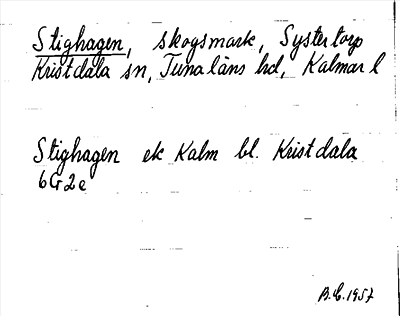 Stighagen, skogsmark, Systertorp
Kristdala sn, Tuna läns hd, Kalmar l
Stighagen ek Kalm bl. Kristdala
6G2e
B.E. 1957